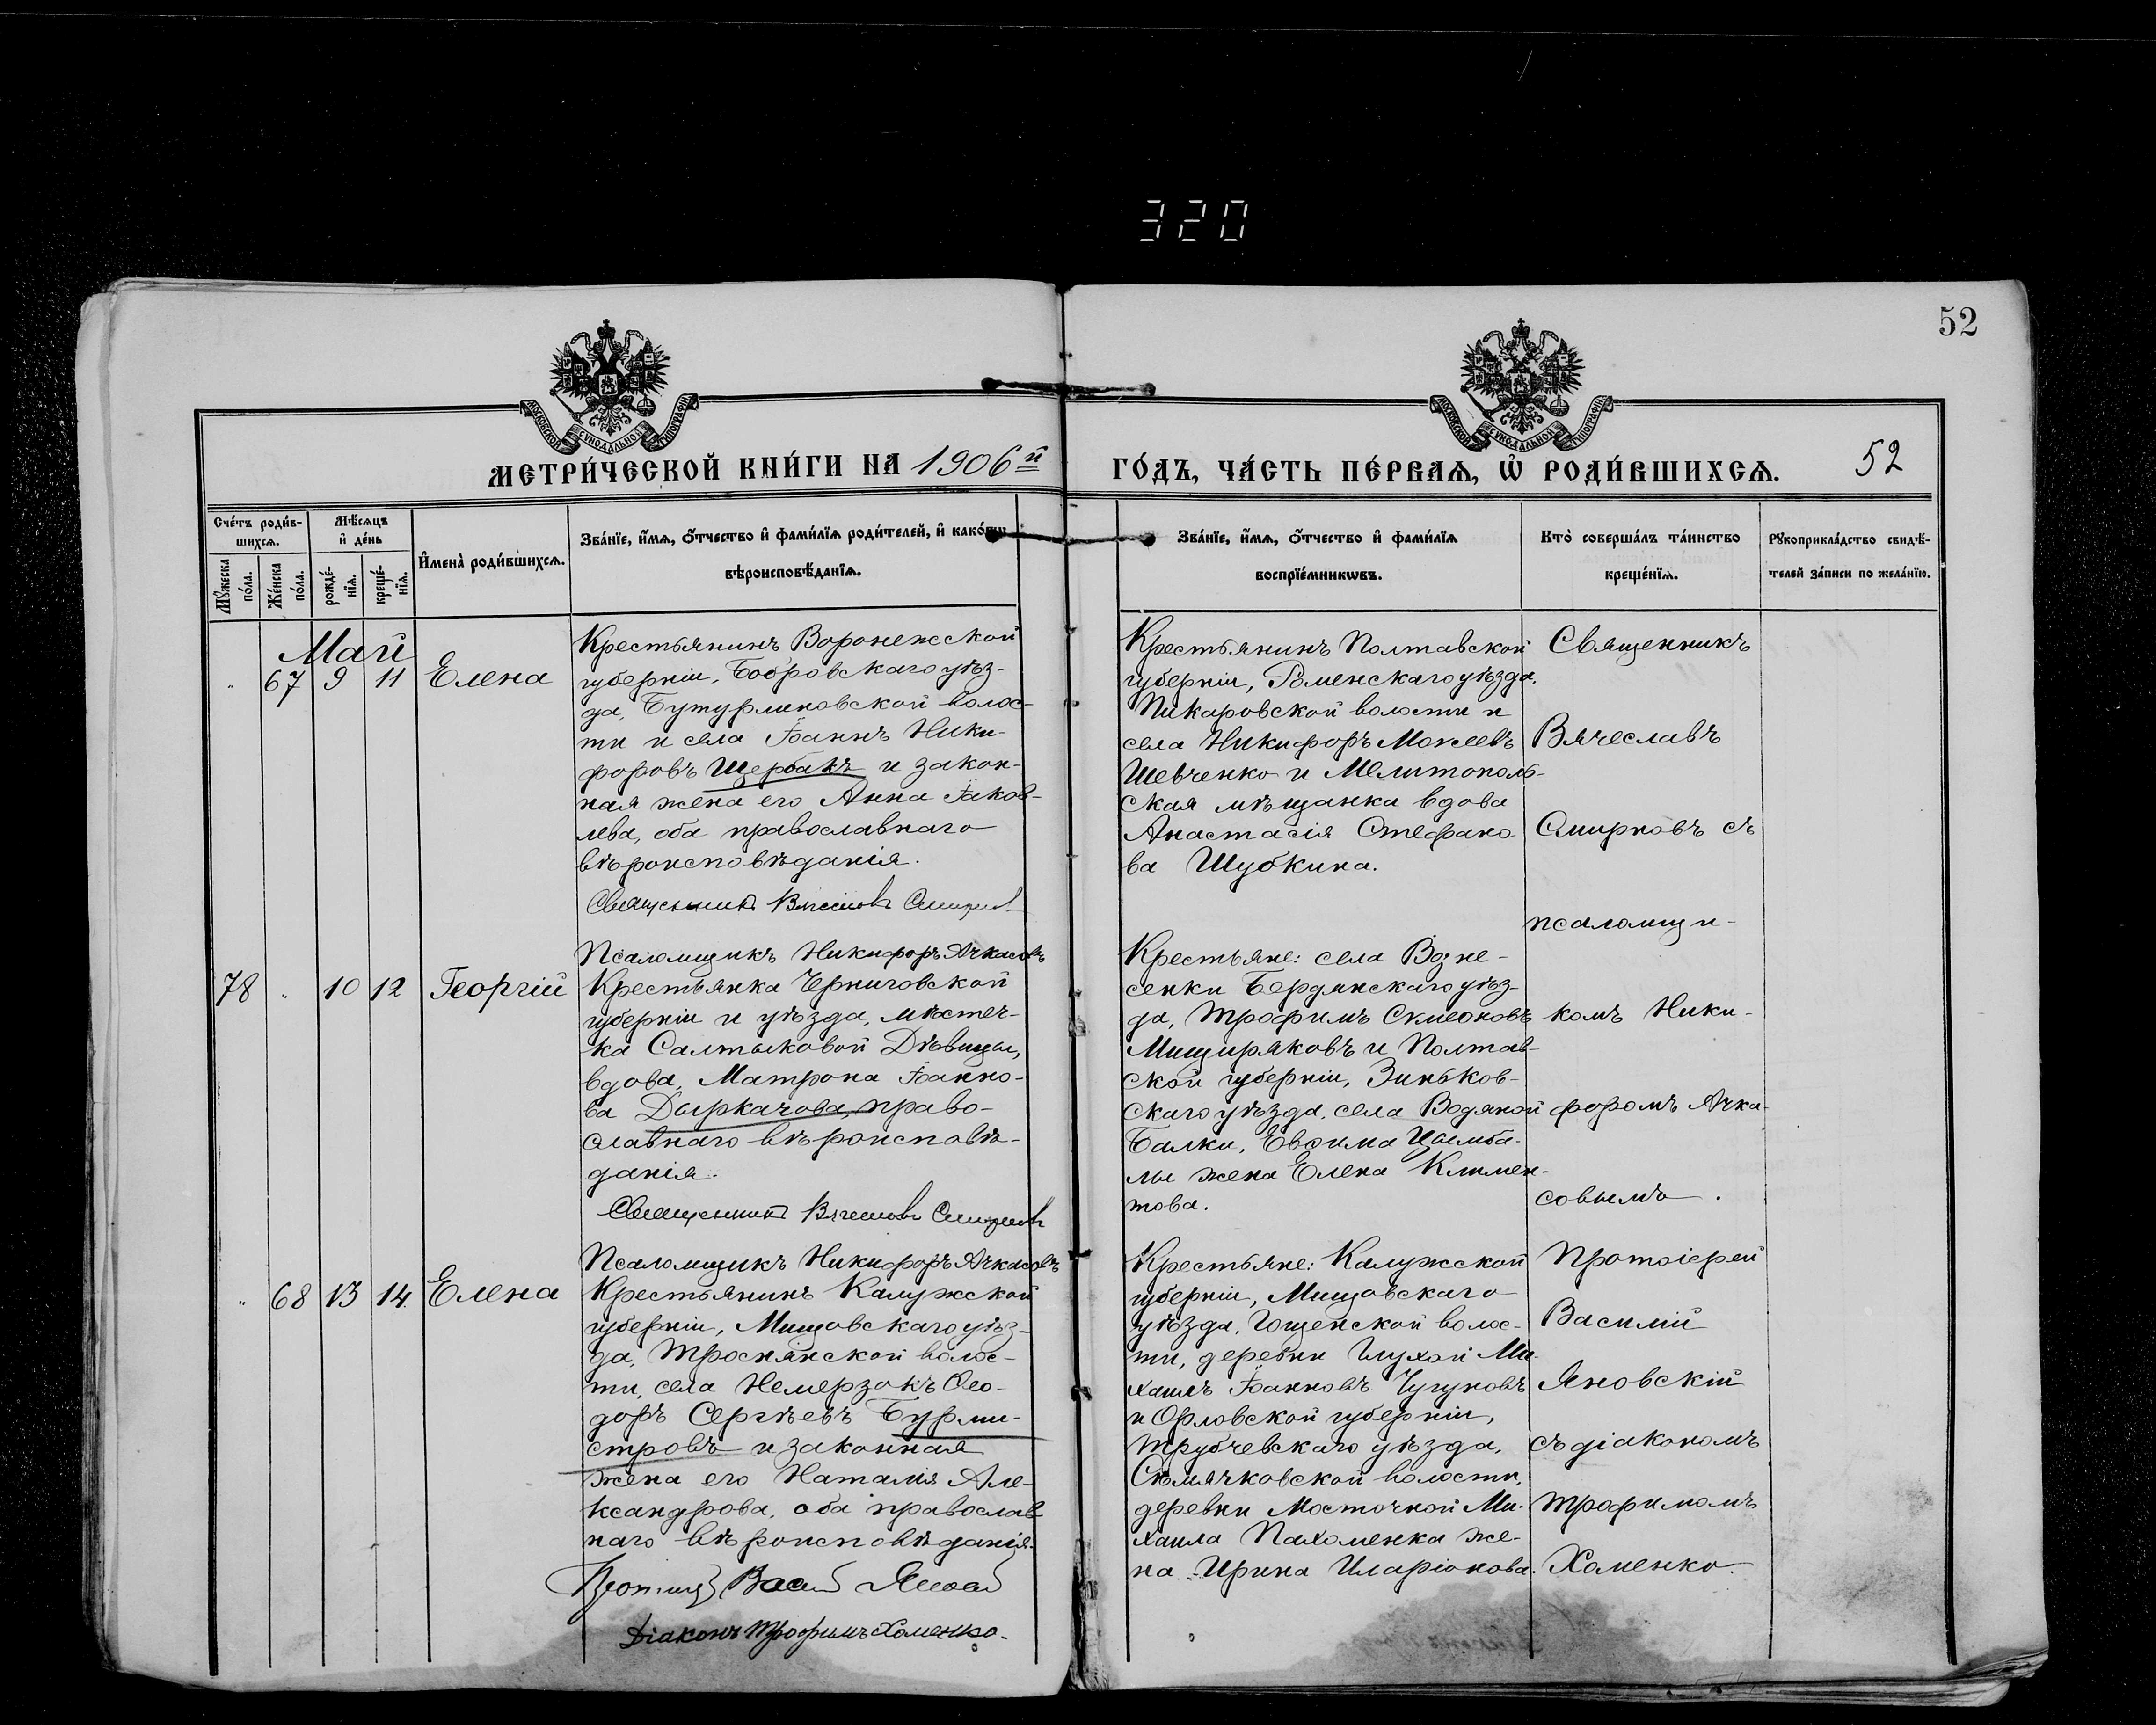 320
52
МОСКОВСКОЙ СѴНОДАЛЬНОЙ ТИПОГРАФІИ
МОСКОВСКОЙ СѴНОДАЛЬНОЙ ТИПОГРАФІИ
МЕТРИ́ЧЕСКОЙ КНИ́ГИ НА 1906й
ГО́ДЪ, ЧА́СТЬ ПЕ́РВАѦ, Ѡ҆ РОДИ́ВШИХСѦ.
52
Сче́тъ роди́в-
шихсѧ.
Мѣ́сѧцъ
и҆ де́нь
Мꙋ́жеска
по́ла.
Же́нска
по́ла.
рожде́-
нїѧ.
креще́-
нїѧ.
И҆мена̀ роди́вшихсѧ.
Зва́нїе, и҆́мѧ, о҆́тчество и҆ фами́лїѧ роди́телей, и҆ како́гѡ
вѣроисповѣ́данїѧ.
Зва́нїе, и҆́мѧ, о҆́тчество и҆ фами́лїѧ
воспрїе́мникѡвъ.
Кто̀ соверша́лъ та́инство
креще́нїѧ.
Рꙋкоприкла́дство свидѣ́-
телей за́писи по жела́нїю.
Май
" 67 9 11 Елена
Крестьянинъ Воронежской
губерніи, Бобровскаго уѣз-
да, Бутурлиновской волос-
ти и села Іоаннъ Ники-
форовъ Щербакъ и закон-
ная жена его Анна Іаков-
лева, оба православнаго
вѣроисповѣданія.
Священникъ Вячеславъ Смирновъ
Псаломщикъ Никифоръ Ачкасовъ
Крестьянинъ Полтавской
губерніи, Роменскаго уѣзда,
Пикаровской волости и
села Никифоръ Мокеевъ
Шевченко и Мелитополь-
ская мѣщанка вдова
Анастасія Стефано
ва Шубкина.
Священникъ
Вячеславъ
Смирновъ съ
псаломщи-
комъ Ники-
форомъ Ачка-
совымъ.
78 " 10 12 Георгій
Крестьянка Черниговской
губерніи и уѣзда, мѣстеч-
ка Салтыковой Дѣвицы,
вдова, Матрона Іоанно-
ва Дыркачова, право-
славнаго вѣроисповѣ-
данія.
Священникъ Вячеславъ Смирновъ
Псаломщикъ Никифоръ Ачкасовъ
Крестьяне: села Возне-
сенки Бердянскаго уѣз-
да, Трофимъ Симеоновъ
Мищиряковъ и Полтав-
ской губерніи, Зиньков-
скаго уѣзда, села Водяной
Балки, Евѳима Цымба-
лы жена Елена Климен-
това.
" 68 13 14 Елена
Крестьянинъ Калужской
губерніи, Мищовскаго уѣз-
да, Троснянской волос-
ти, села Немерзокъ Ѳео-
доръ Сергѣевъ Бурми-
стровъ и законная
жена его Наталія Але-
ксандрова, оба православ
наго вѣроисповѣданія.
Протоіерей Василій Яновскій
Діаконъ Трофимъ Хоменко.
Крестьяне: Калужской
губерніи, Мищовскаго
уѣзда, Гощенской волос-
ти, деревни Глухой Ми-
хаилъ Іоанновъ Чугуновъ
и Орловской губерніи,
Трубчевскаго уѣзда,
Сѣмячковской волости,
деревни Мосточной Ми-
хаила Пахоменка же-
на Ирина Иларіонова.
Протоіерей
Василій
Яновскій
съ діакономъ
Трофимомъ
Хоменко.